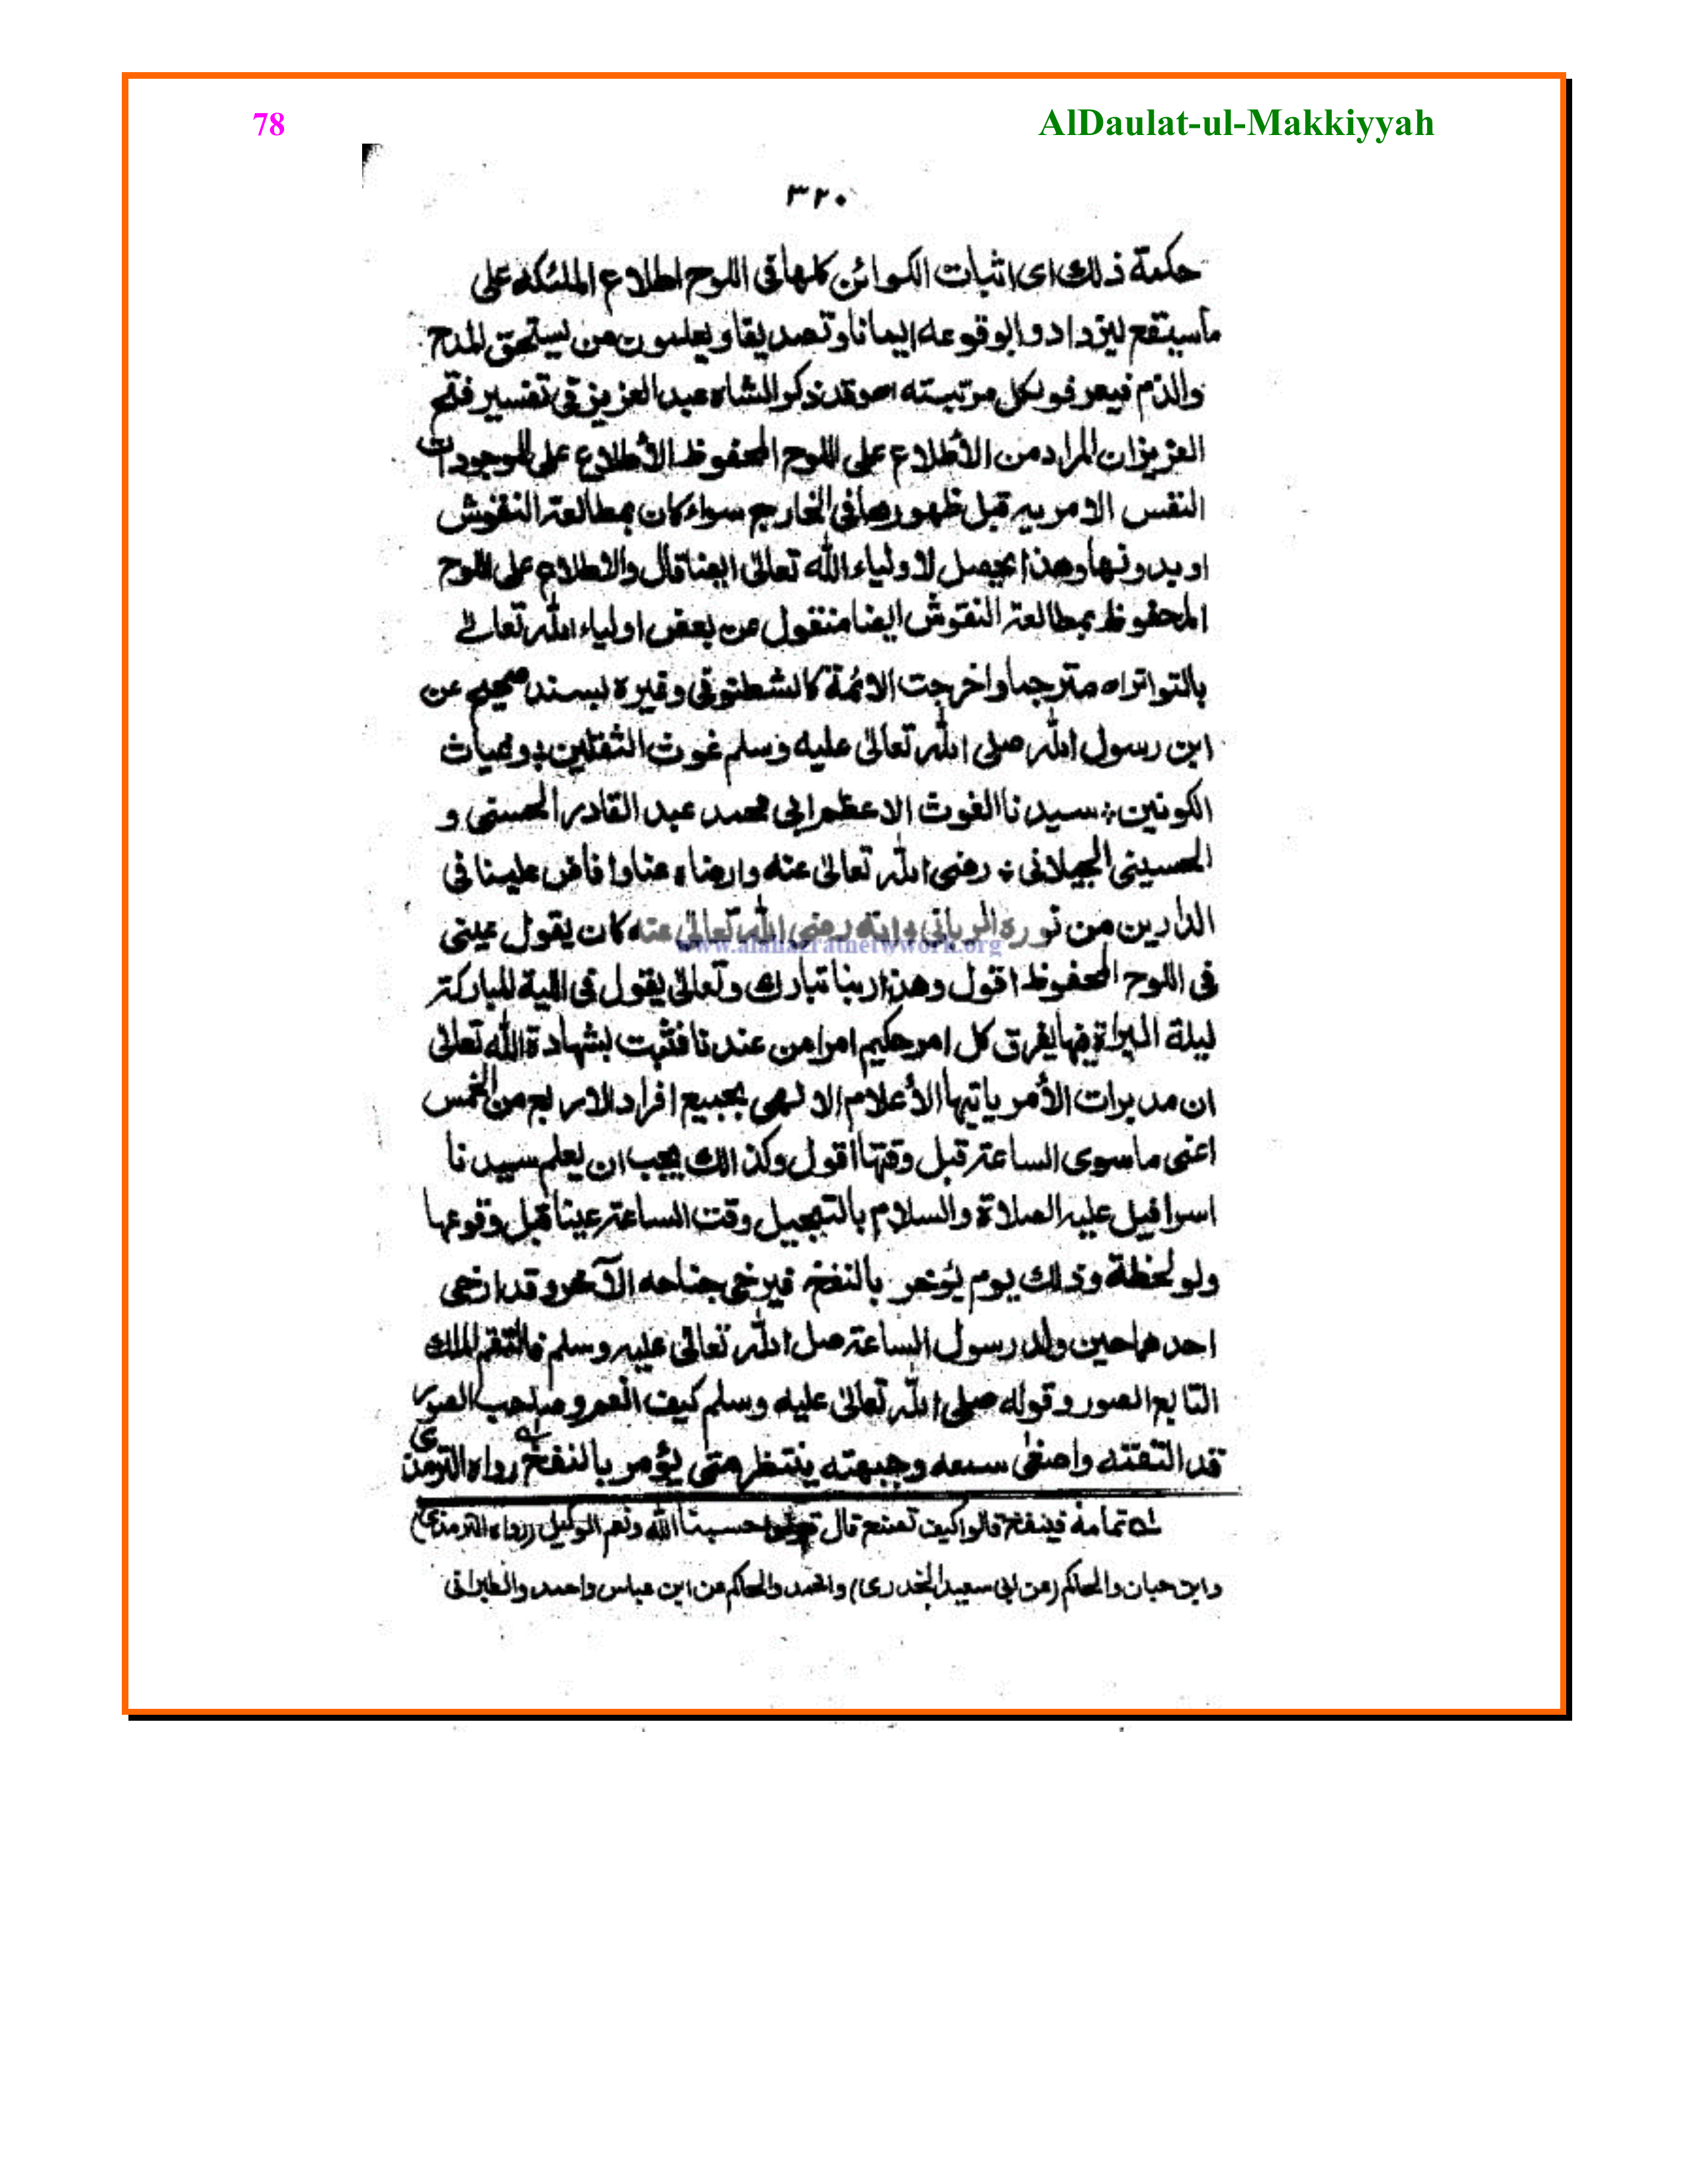 78 AlDaulat-ul-Makkiyyah
٣٢٠
حكمة ذلك اى اثبات الكوائن كلها فى اللوح اطلاع الملئكة على
ماسيقع ليزدادوا بوقوعه ايمانا وتصديقا ويعلمون من يستحق المدح
والذم فيعرفو لكل مرتبته اهـ وقد ذكر الشاه عبد العزيز فى تفسير فتح
العزيزان المراد من الأطلاع على اللوح المحفوظ الأطلاع على الموجودات
النفس الامريه قبل ظهورها فى الخارج سواء كان بمطالعة النقوش
او بدونها وهذا يحصل لاولياء الله تعالىٰ ايضا قال والاطلاع على اللوح
المحفوظ بمطالعة النقوش ايضا منقول عن بعض اولياء الله تعالےٰ
بالتواتراه مترجما واخرجت الائمة كالشطنوفى وغيره بسند صحيح عن
ابن رسول الله صلى الله تعالىٰ عليه وسلم غوث الثقلين ؛ وغياث
الكونين ؛ سيدنا الغوث الاعظم ابى محمد عبد القادر الحسنى و
الحسينى الجيلانى ؛ رضى الله تعالىٰ عنه وارضاه عنا وافاض علينا فى
الدارين من نوره الربانى ؛ انه رضى الله تعالىٰ عنه كان يقول عينى
www.alahazratnetwork.org
فى اللوح المحفوظ اقول وهذا ربنا تبارك وتعالىٰ يقول فى اليلة المباركة
ليلة البراة فيها يفرق كل امر حكيم امرا من عندنا فثبت بشهادة الله تعالىٰ
ان مدبرات الأمر ياتيها الأعلام الالهى بجميع افراد الاربع من الخمس
اعنى ما سوى الساعة قبل وقتها اقول وكذالك يجب ان يعلم سيدنا
اسرافيل عليه الصلاة والسلام بالتبجيل وقت الساعة عينا قبل وقوعها
ولو لحظة وذلك يوم يؤمر بالنفخ فيرخى جناحه الآخر وقد ارخى
احدهما حين ولد رسول الساعة صلى الله تعالىٰ عليه وسلم فالتقم الملك
التابع الصور وقوله صلى الله تعالىٰ عليه وسلم كيف انعم وصاحب الصور
قد التقته واصغىٰ سمعه وجبهته ينتظر متى يؤمر بالنفخ رواه الترمذى
تمامه فينفخ قالوا كيف تصنع قال قولوا حسبنا الله ونعم الوكيل (رواه الترمذى
وابن حبان والحاكم (عن ابى سعيد الخدرى) واحمد والحاكم عن ابن عباس واحمد والطبرانى